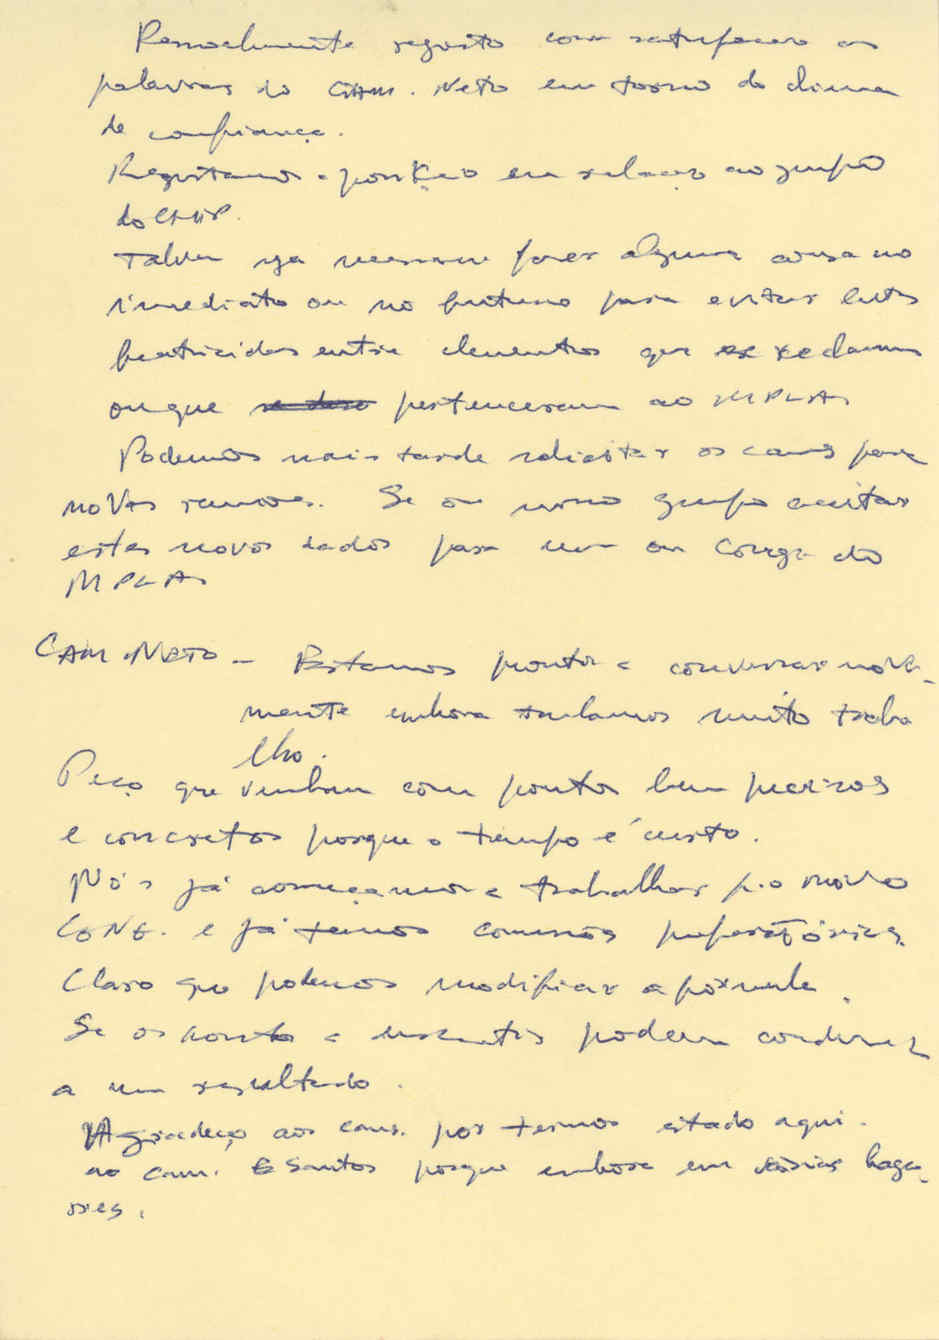 Pessoalmente registo com satisfação as
palavras do CAM. Neto em torno do clima
de confiança.
Registamos a posição em relação ao grupo
do
Talvez seja necessário fazer alguma coisa no
imediato ou no futuro para evitar lutas
fratricidas entre elementos que se reclamam
ou que pertenceram ao MPLA.
Podemos mais tarde solicitar os cams para
novas reuniões. Se o nosso grupo aceitar
estes novos dados para um ou Congr. do
MPLA
CAM. NETO – Estamos prontos a conversar nova-
mente embora tenhamos muito traba
lho.
Peço que venham com pontos bem precisos
e concretos porque o tempo é curto.
Nós já começamos a trabalhar p. o novo
CONG. e já temos comissões preparatórias.
Claro que podemos modificar a fórmula.
Se os pontos a podem conduzir
a um resultado.
Agradeço aos cams. por termos estado aqui.
ao cam. E Santos porque embora em